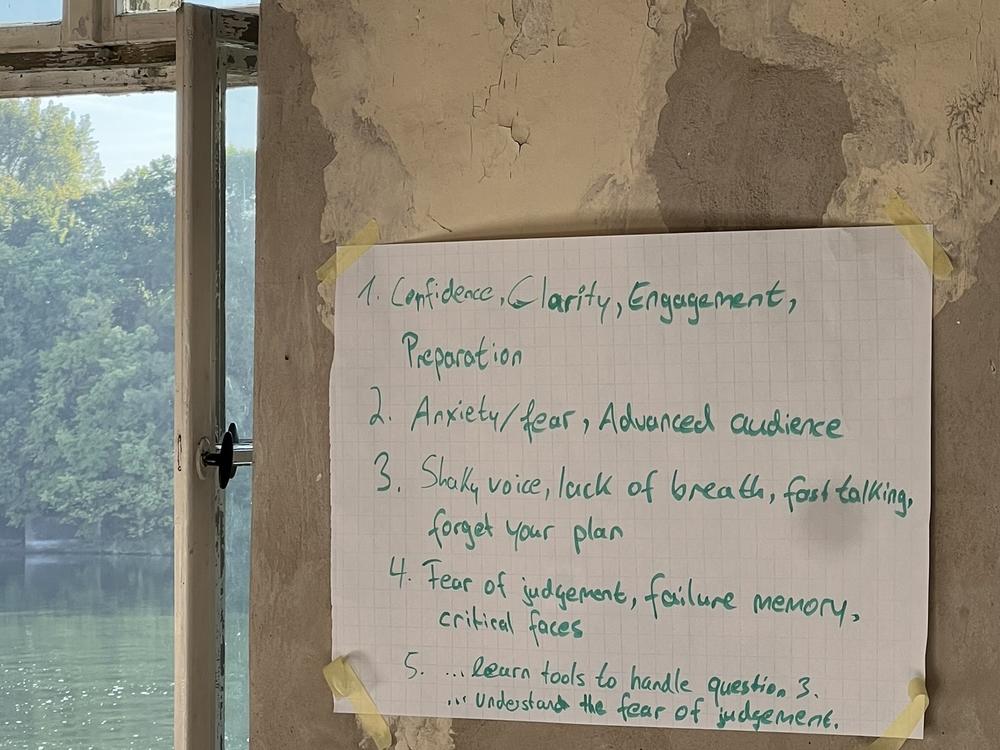 1. Confidence, Clarity, Engagement,
Preparation
2. Anxiety/fear, Advanced audience
3. Shaky voice, lack of breath, fast talking,
forget your plan
4. Fear of judgement, failure memory,
critical faces
5. ...learn tools to handle question 3.
... understand the fear of judgement.